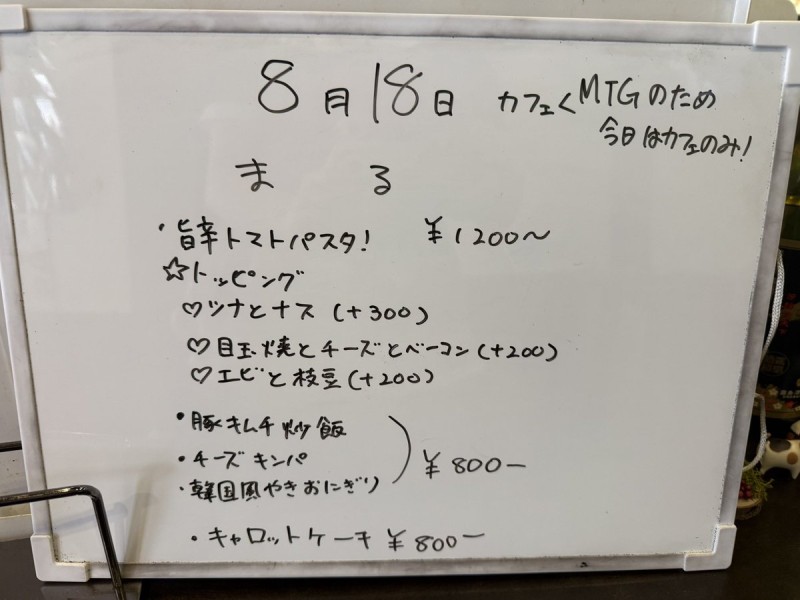 8月18日 カフェく MTGのため
今日はカフェのみ!
まる
・旨辛トマトパスタ! ¥1200〜
☆トッピング
♡ツナとナス (+300)
♡目玉焼とチーズとベーコン(+200)
♡エビと枝豆(+200)
・豚キムチ炒飯
・チーズキンパ
¥800ー
・韓国風やきおにぎり
・キャロットケーキ ¥800ー